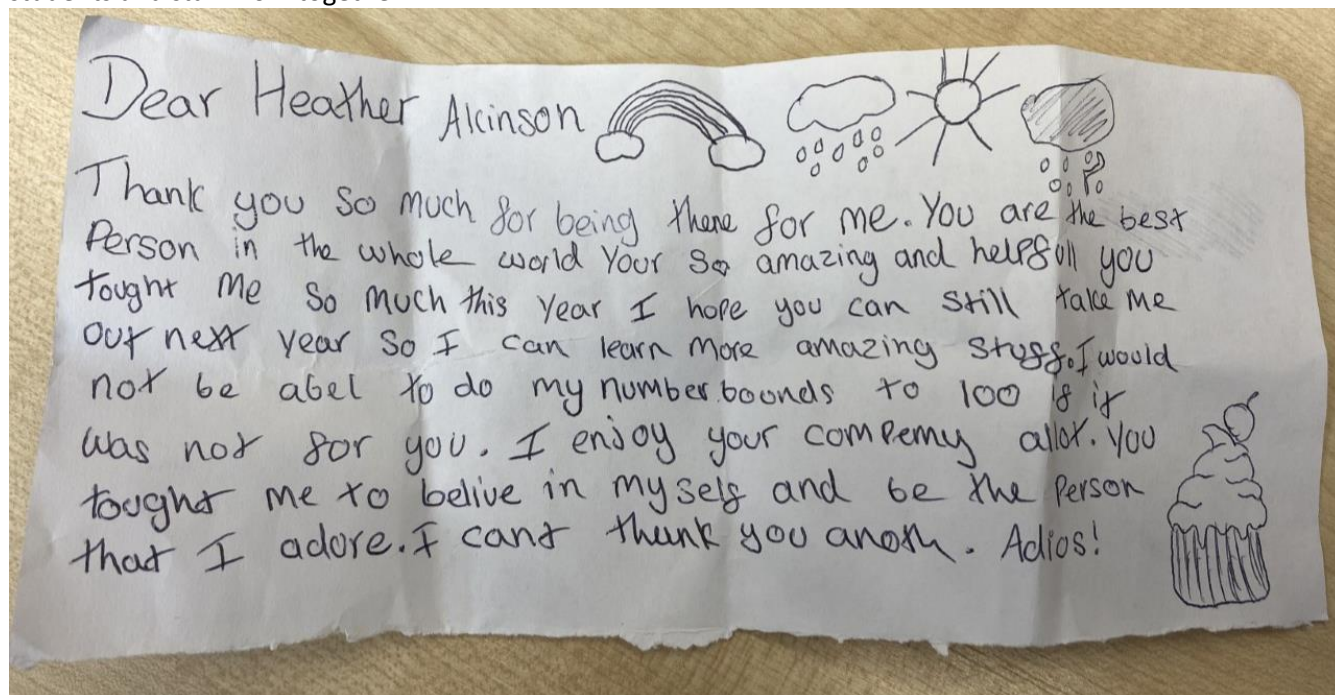 Dear Heather Alcinson
Thank you so much for being there for me. You are the best
Person in the whole world Your so amazing and helpfull you
tought me so much this year I hope you can still take me
out next year so I can learn more amazing stuff. I would
not be abel to do my number bounds to 100 if it
was not for you. I enjoy your compemy allot. You
tought me to belive in my self and be the Person
that I adore. I cant thank you anoth. Adios!